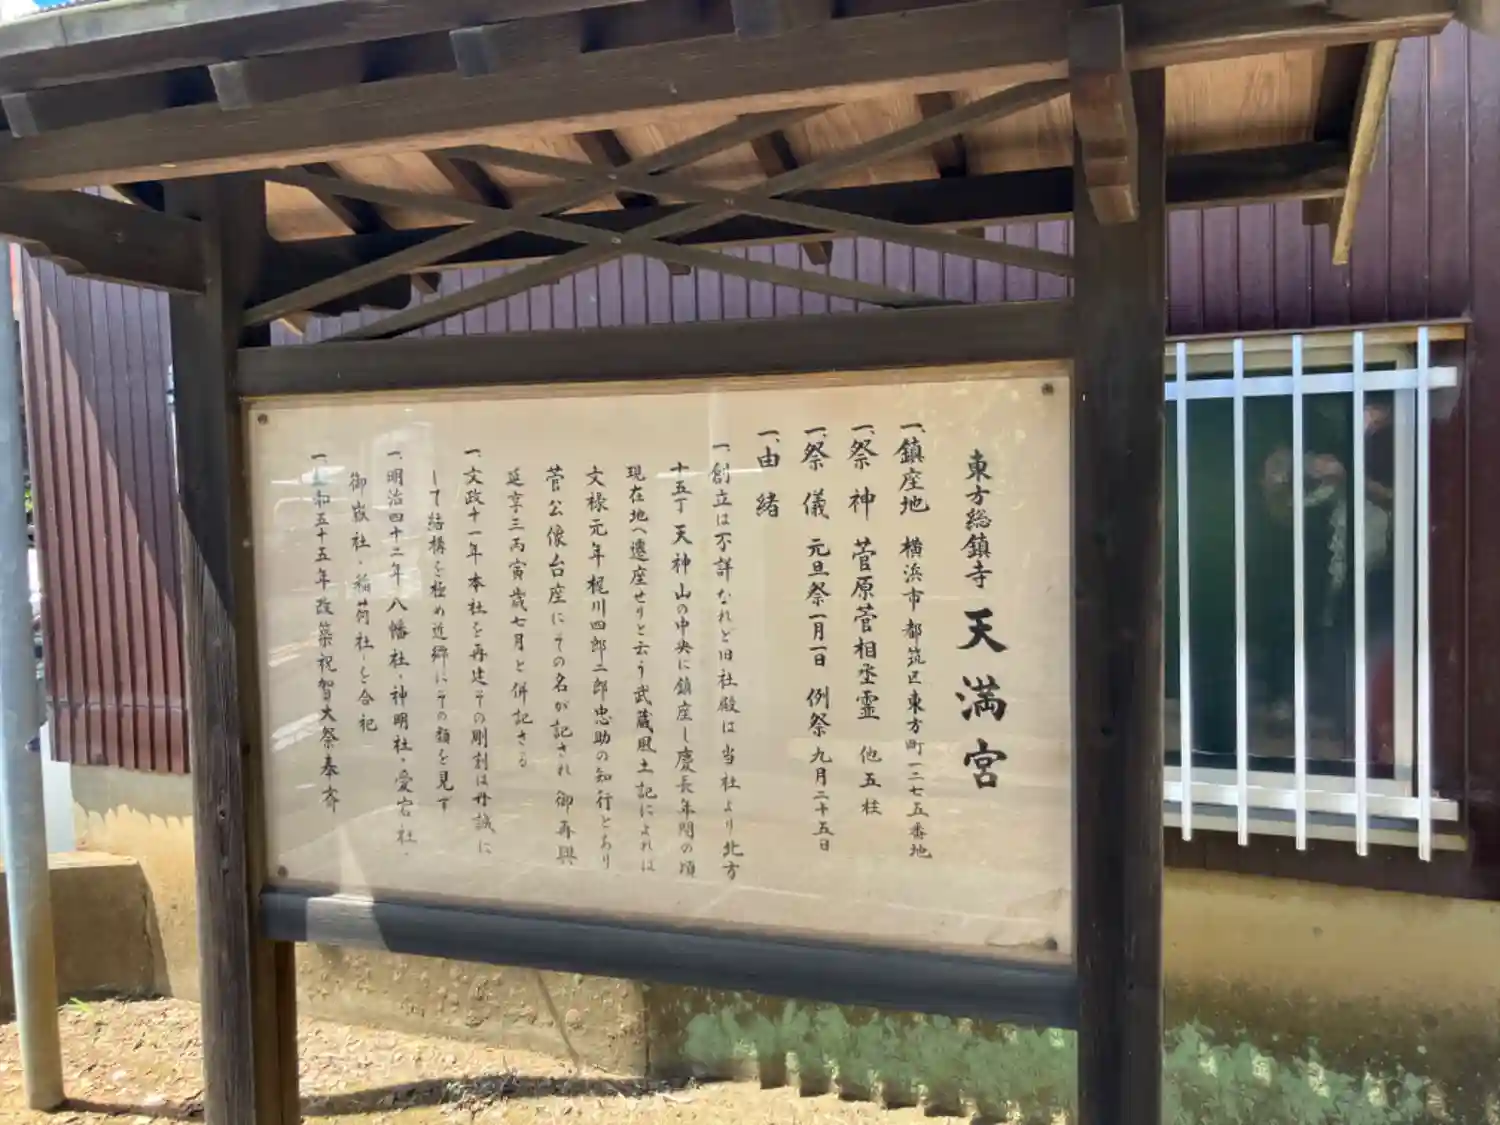 東方総鎮寺 天満宮
一、鎮座地 横浜市都筑区東方町一二七五番地
一、祭神 菅原菅相丞霊 他五柱
一、祭儀 元旦祭一月一日 例祭九月二十五日
一、由緒
一、創立は不詳なれど旧社殿は当社より北方
十五丁天神山の中央に鎮座し慶長年間の頃
現在地へ遷座せりと云う武蔵風土記によれは
文禄元年梶川四郎二郎忠助の知行とあり
菅公像台座にその名が記され 御再興
延享三丙寅歳七月と併記さる
一、文政十一年本社を再建その彫刻は丹誠に
して結構を極め近郷にその類を見ず
一、明治四十二年八幡社、神明社、愛宕社、
御嶽社、稲荷社を合祀
一、昭和五十五年改築祝賀大祭奉斎